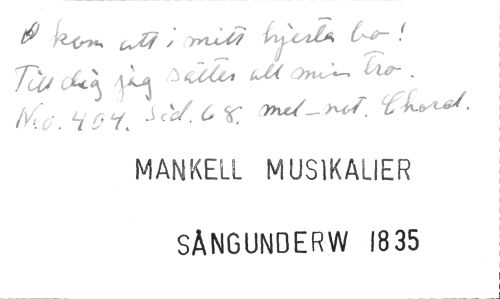 O kom att i mitt hjerta bo!
Till dig jag sätter all min tro.
No. 404. Sid. 68. mel-not. Choral.
MANKELL MUSIKALIER
SÅNGUNDERW 1835